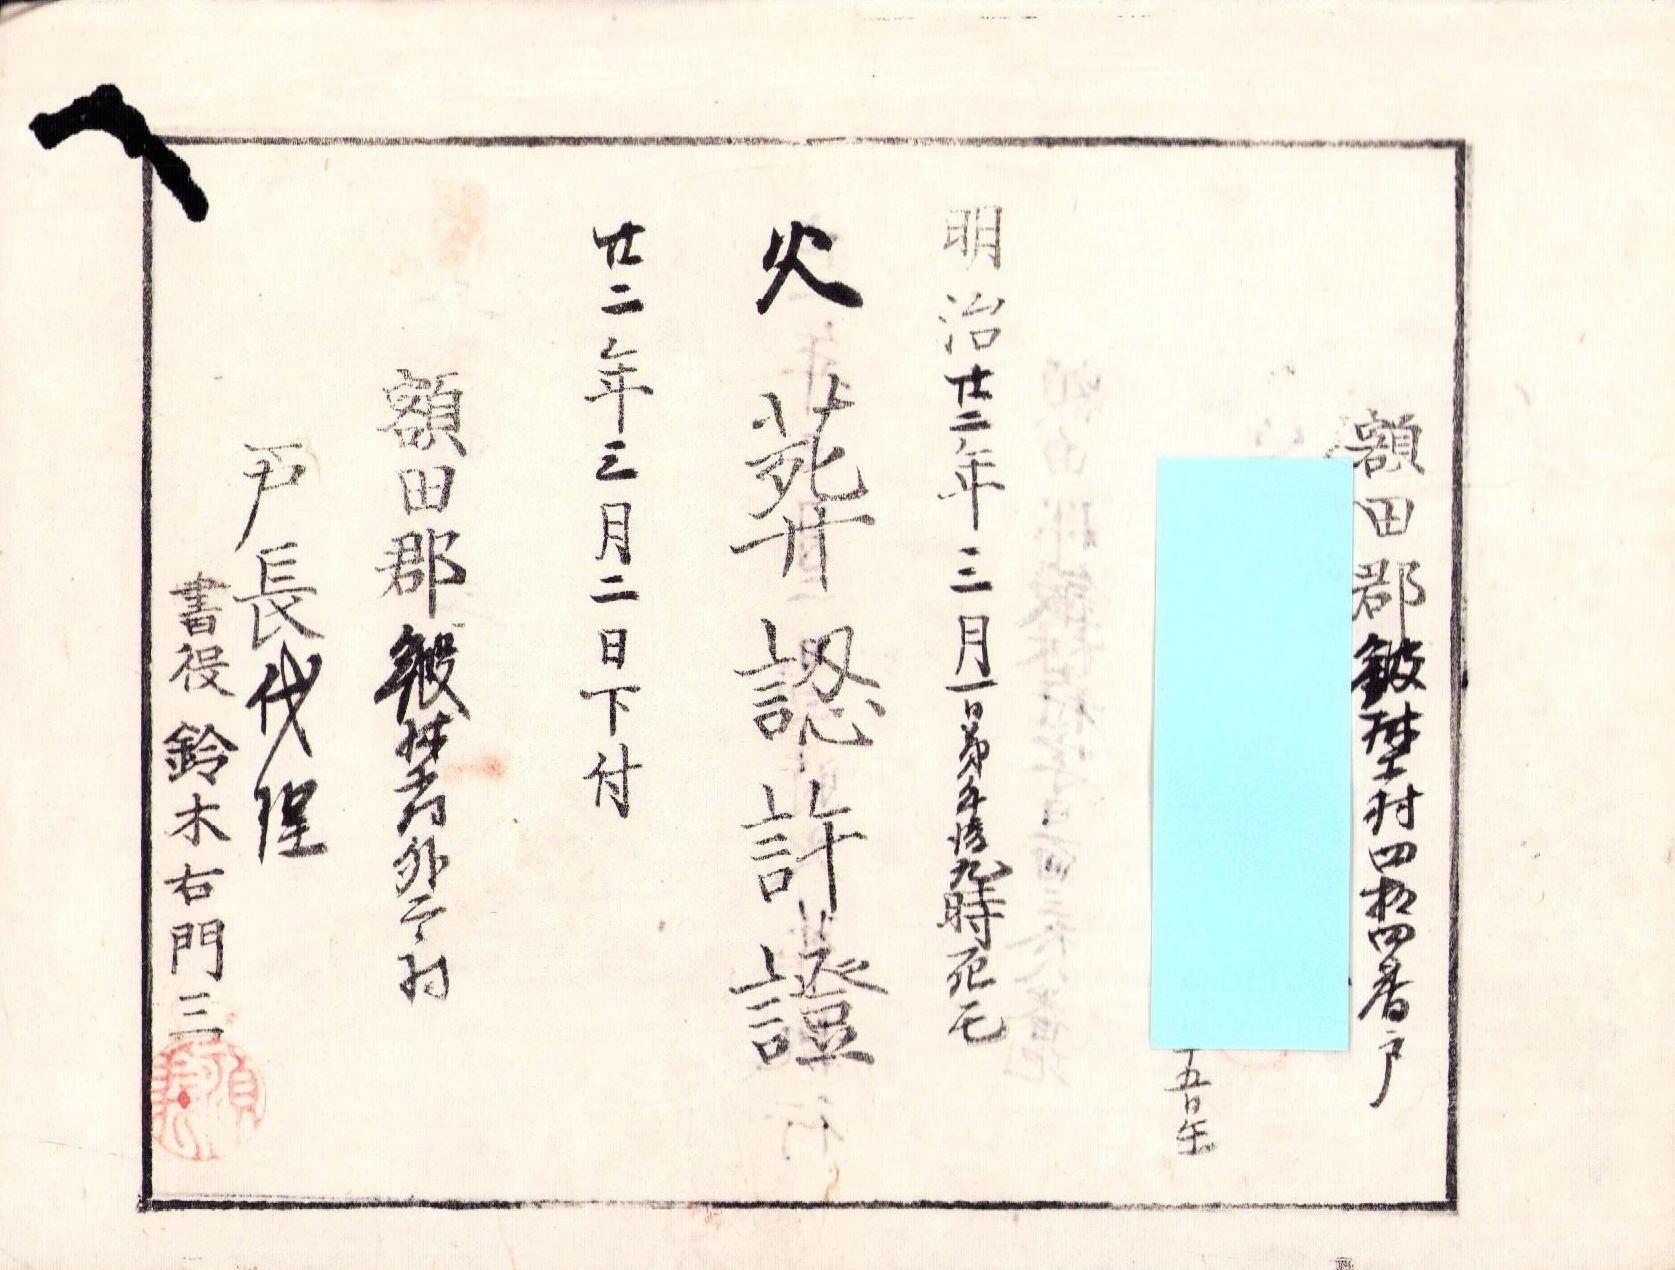 額田郡鍛埜村四拾四番戸
五日生
明治廿二年三月一日第午後九時死亡
火葬認許證
廿二年三月二日下付
額田郡鍛埜村外二ヶ村
戸長代理
書役 鈴木右門三